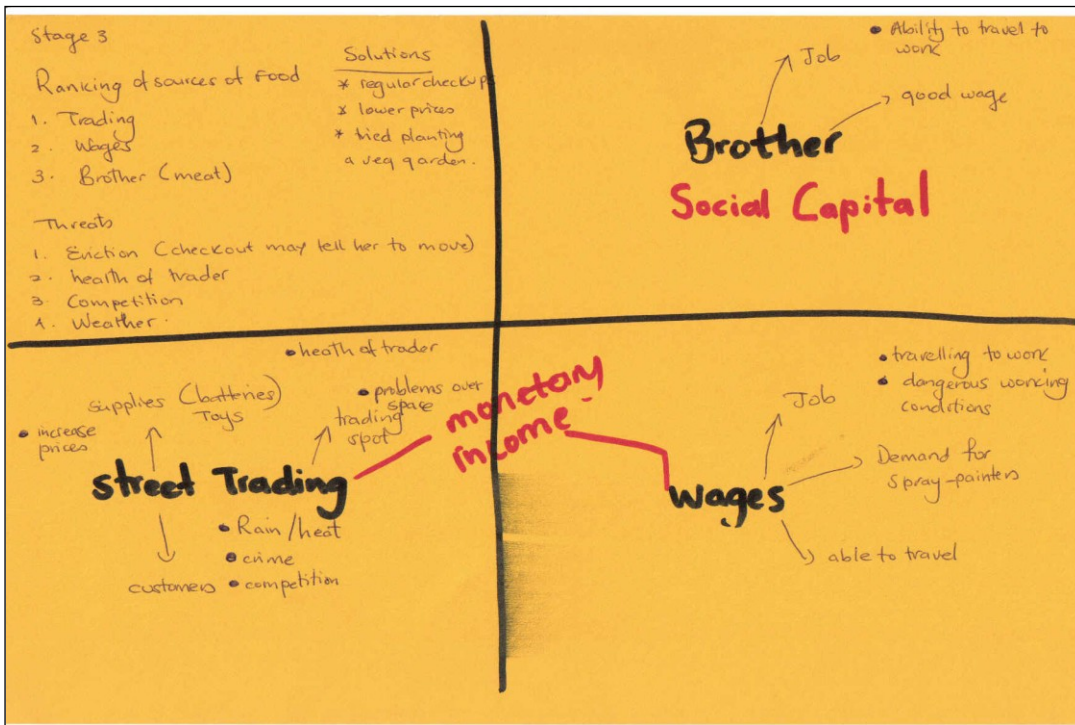 Stage 3
Ranking of sources of Food
1. Trading
2. Wages
3. Brother (meat)
Solutions
* regular checkups
* lower prices
* tried planting
a veg garden.
Threats
1. Eviction (checkout may tell her to move)
2. health of trader
3. Competition
4. Weather.
• Ability to travel to
work
Job
good wage
Brother
Social Capital
• heath of trader
supplies (batteries)
Toys
• problems over
space
trading
spot
• increase
prices
street Trading
• Rain / heat
• crime
• competition
customers
monetary
income
• travelling to work
• dangerous working
conditions
Job
Demand for
spray-painters
wages
able to travel